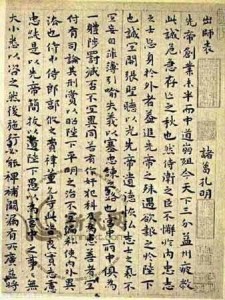 出師表 諸葛孔明
先帝創業未半而中道崩殂今天下三分益州疲敝
此誠危急存亡之秋也然侍衛之臣不懈於內忠志
之士忘身於外者蓋追先帝之殊遇欲報之於陛下
也誠宜開張聖聽以光先帝遺德恢弘志士之氣不
宜妄自菲薄引喻失義以塞忠諫之路也宮中府中俱為
一體陟罰臧否不宜異同若有作奸犯科及為忠善者宜
付有司論其刑賞以昭陛下平明之治不宜偏私使內外異
法也侍中侍郎郭攸之費禕董允等此皆良實志慮
忠純是以先帝簡拔以遺陛下愚以為宮中之事無
大小悉以咨之然後施行必能裨補闕漏有所廣益將